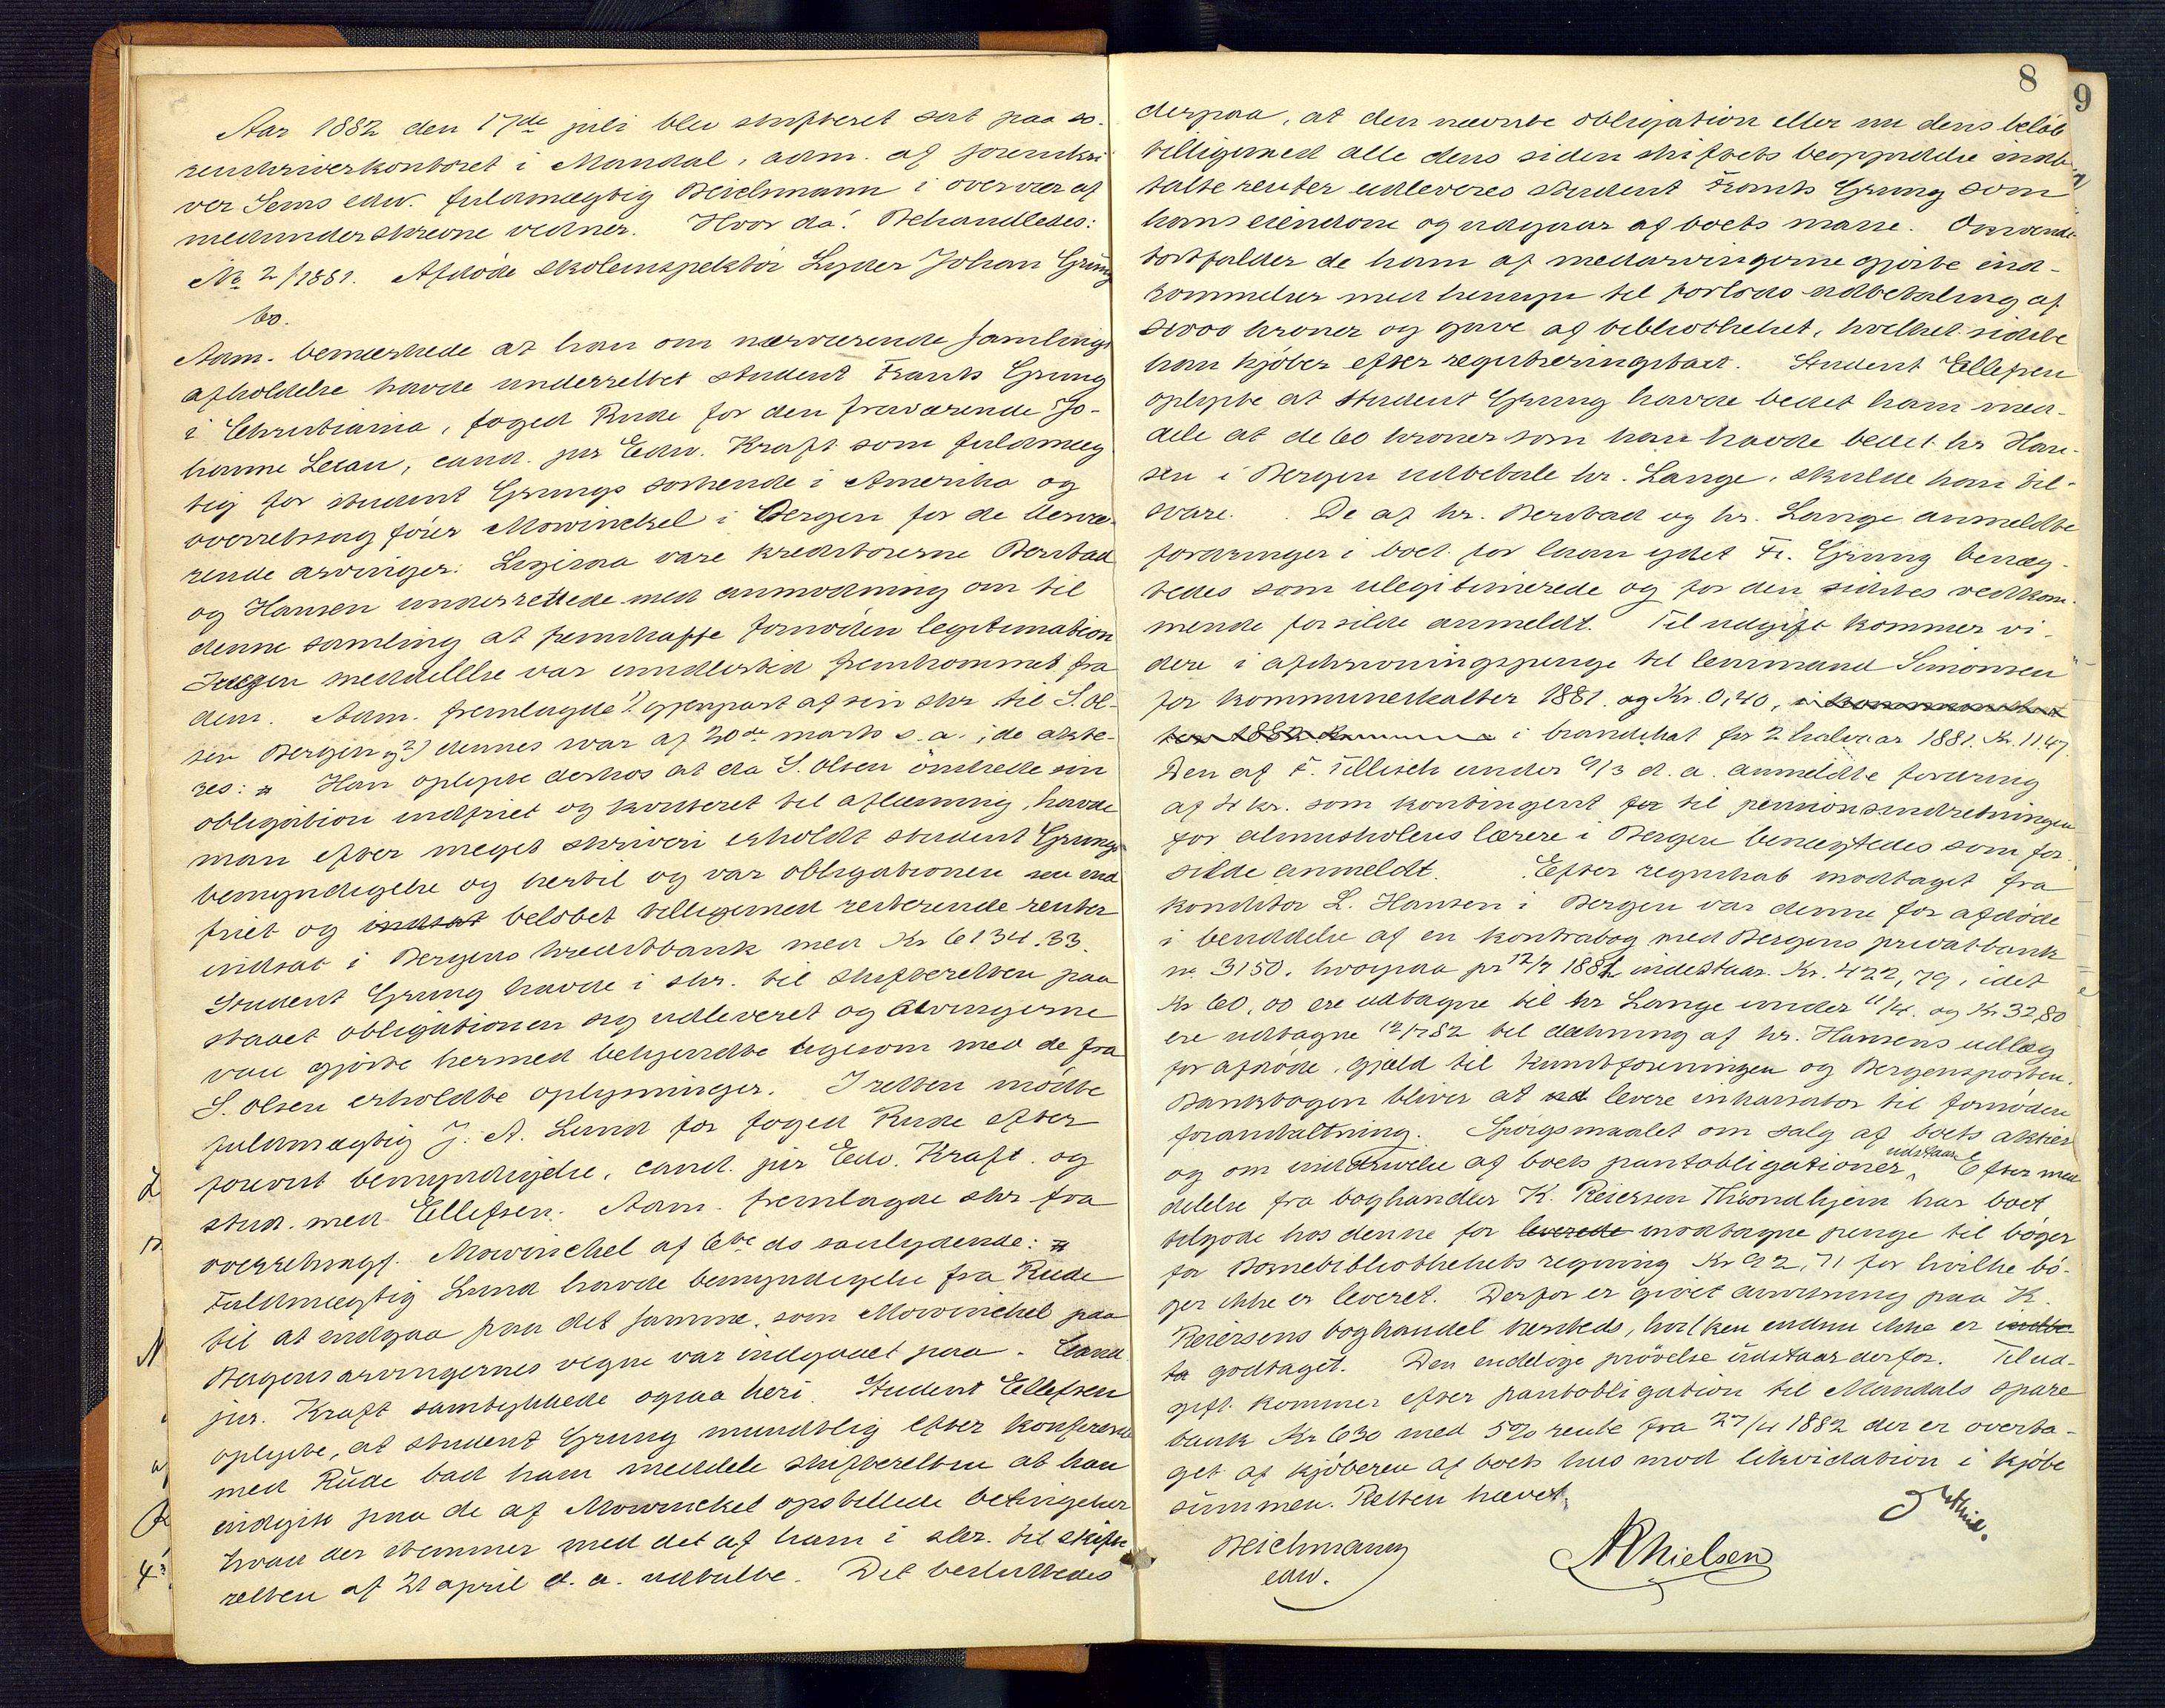 Aar 1882 den 17de juli blev skifteret sat paa so-
renskriverkontoret i Mandal, adm. af sorenskri
ver Sems edsv. fuldmægtig Beichmann i overvær af
medunderskrevne vidner. Hvor da: Behandledes:
No 2/1881. Afdøde skoleinspektør Lyder Johan Grung
bo.
Adm. bemærkede at han om nærværende samlings
afholdelse havde underrettet student Frants Grung
i Christiania, foged Rude for den fraværende Jo-
hanne Lecau, cand. jur Edv. Kraft som fuldmæg
tig for student Grungs søskende i Amerika og
overretssagfører Mowinckel i Bergen for de dervæ-
rende arvinger. Ligesaa vare kreditorerne Berstad
og Hansen underrettede med anmodning om til
denne samling at fremskaffe fornøden legitimation
Ingen meddelelse var imidlertid fremkommet fra
dem. Adm. fremlagde 1) gjenpart af sin skr til S. Ol-
sen Bergen og 2) dennes svar af 20de marts s. a., de akte-
res: # Han oplyste derhos at da S. Olsen ønskede sin
obligation indfriet og kvitteret til aflæsning, havde
man efter meget skriveri erholdt student Grungs
bemyndigelse og hertil og var obligationen saa ind
friet og indsat beløbet tilligemed resterende renter
indsat i Bergens kreditbank med Kr 6134.33.
Student Grung havde i skr. til skifteretten paa
staaet obligationen sig udleveret og arvingerne
vare gjorte hermed bekjendte ligesom med de fra
S. Olsen erholdte oplysninger. I retten mødte
fuldmægtig J. A. Lund for foged Rude efter
forevist bemyndigelse, cand. jur Edv. Kraft. og
stud. med Ellefsen. Adm. fremlagde skr fra
overretssagf. Mowinckel af 6te ds saalydende: #
Fuldmægtig Lund havde bemyndigelse fra Rude
til at indgaa paa det samme, som Mowinckel paa
Bergensarvingernes vegne var indgaaet paa. Cand.
jur. Kraft samtykkede ogsaa heri. Student Ellefsen
oplyste, at student Grung mundtlig efter konferense
med Rude bad ham meddele skifteretten at han
indgik paa de af Mowinckel opstillede betingelser
hvad der stemmer med det af ham i skr. til skifte
retten af 21 april d. a. udtalte. Det besluttedes
8
9
derpaa, at den nævnte obligation eller nu dens beløb
tilligemed alle dens siden skiftets begyndelse indbe
talte renter udleveres student Frants Grung som
hans eiendom og udgaar af boets masse. Omvendt
bortfalder de ham af medarvingerne gjorte ind-
rømmelser med hensyn til forlods udbetaling af
2000 kroner og gave af bibliotheket, hvilket sidste
han kjøber efter registreringstaxt. Student Ellefsen
oplyste at student Grung havde bedet ham med-
dele at de 60 kroner som han havde bedet hr Han-
sen i Bergen udbetale hr. Lange, skulde han til-
svare. De af hr. Berstad og hr. Lange anmeldte
fordringer i boet for laan ydet Fr. Grung benæg-
tedes som ulegitimerede og for den sidstes vedkom-
mende forsilde anmeldt. Til udgift kommer vi-
dere i afskrivningspenge til lensmand Simonsen
for kommuneskatter 1881 og Kr. 0,40, i kommuneskat
ter 1882 i brandskat for 2 halvaar 1881. Kr. 11.47.
Den af F. Tillisch under 9/3 d. a. anmeldte fordring
af 4 kr. som kontingent for til pensionsindretningen
for almuskolens lærere i Bergen benægtedes som for
silde anmeldt. Efter regnskab modtaget fra
konditor L. Hansen i Bergen var denne for afdøde
i besiddelse af en kontrabog med Bergens privatbank
no 3150, hvorpaa pr 12/7 1882 indestaar. Kr. 422,79, idet
Kr 60,00 ere udtagne til hr Lange under 11/4. og Kr 32,80
ere udtagne 12/7 82 til dækning af hr. Hansens udlæg
for afdøde, gjæld til kunstforeningen og Bergensposten.
Bankbogen bliver at ud levere inkassator til fornøden
foranstaltning. Spørgsmaalet om salg af boets aktier
og om inddrivelse af boets pantobligationer udstaar Efter med
delelse fra boghandler K. Reiersen Throndhjem har boet
tilgode hos denne for leverede modtagne penge til bøger
for Børnebibliothekets regning Kr 92,71 for hvilke bø-
ger ikke er leveret. Derfor er givet anvisning paa K.
Reiersens boghandel hersteds, hvilken endnu ikke er indbe
ta godtaget. Den endelige prøvelse udstaar derfor. Til ud-
gift kommer efter pantobligation til Mandals spare
bank Kr 630 med 5% rente fra 27/4 1882 der er overta-
get af kjøberen af boets hus mod likvidation i kjøbe
summen. Retten hævet.
Beichmann
edsv.
Nielsen